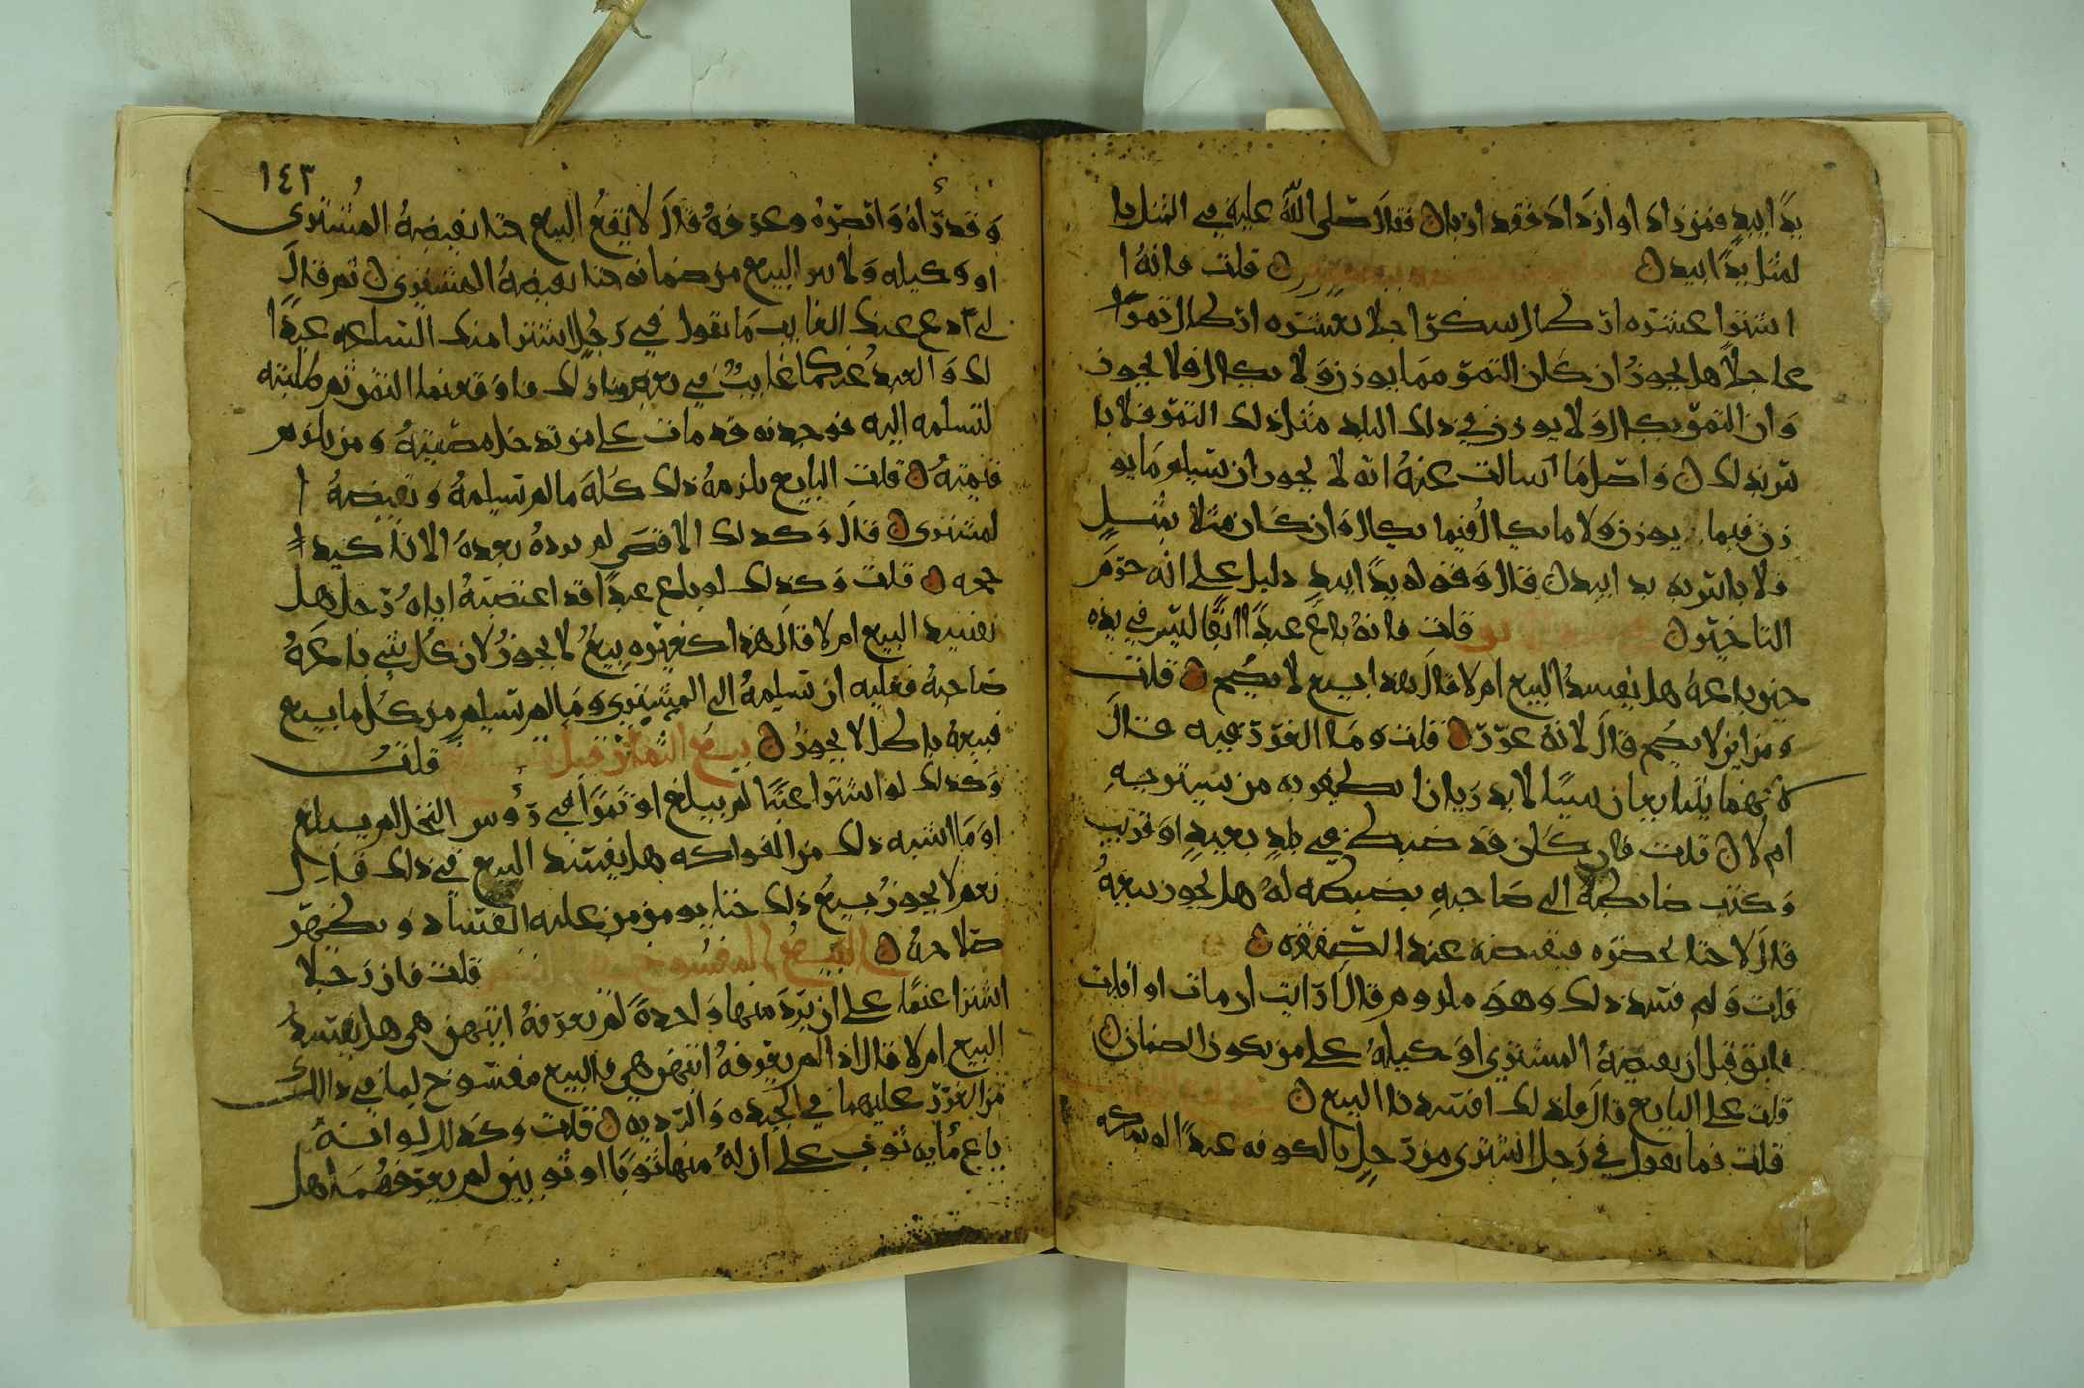 يدًا بيدٍ فمن زاد او ازداد فقد اربا ن فقال صلى الله عليه في المثل با
لمثل يدًا بيد ن قلت فانه ا
اشترا عشره ارطال سكرًا اجلا بعشره ارطال تمرًا
عاجلًا هل يجوز ان كان التمر مما يوزن ولا يكال فلا يجوز
وان التمر يكال ولا يوزن في ذلك البلد مثل ذلك التمر فلا با
س بذلك ن واصل ما سالت عنه انه لا يجوز ان تسلم ما يو
زن فيما يوزن ولا ما يكال فيما يكال وان كان مثلا بمثلٍ
فلا باس به يد ابيد ن قال وقوله يدًا بيدٍ دليل على انه حرّم
التاخير ن قلت فانه باع عبدًا ابقًا ليس في يده
حين باعه هل يفسد البيع ام لا قال هذا بيع لا يصح ن قلت
ومن اين لا يصح قال لانه غرر ن قلت وما الغرر فيه قال
لانهما يتبايعان شيئًا لا يدريان ايظفر به من يشتريه
ام لا ن قلت فان كان قد ضبط في بلدٍ بعيدٍ او قريب
وكتب ضابطه الى صاحبه بضبطه له هل يجوز بيعه
قال لا حتا يحضره فيقبضه عند الصفقه ن
قلت ولم فسد ذلك وهو ملزوم قال ارايت ان مات او افلت
فابق قبل ان يقبضه المشتري او وكيله على من يكون الضمان ن
قلت على البايع قال فلذلك افسدنا البيع ن
قلت فما تقول في رجل اشترى من رجلٍ بالكوفه عبدًا له بمكه
١٤٣
وقد رّاه وابصره وعرفه قال لا يقع البيع حتا يقبضه المشترى
او وكيله ولا يبرا البيع من ضمانه حتا يقبضه المشتري ن ثم قال
لي دع عنك الغايب ما تقول في رجل اشترا منك الساعه عبدًا
لك والعبد عنكما غايب في بعض منازلك فاوقعتما الثمن ثم طلبته
لتسلمه اليه فوجدته قد مات على من تدخل مصيبته ومن يلزم
قيمته ن قلت البايع يلزمه ذلك كله ما لم تسلمه ويقبضه ا
لمشترى ن قال وكذلك
قلت وكذلك لو باع عبدًا قد اغتصبه اياه رجل هل
يفسد البيع ام لا قال هذا كغيره بيع لا يجوز لان كل شي باعه
صاحبه فعليه ان تسلمه الى المشتري وما لم تسلم من كل ما يبيع
فبيعه باطل لا يجوز ن بيع الثمار قبل
قلت
وكذلك لو اشترا عنبًا لم يبلغ او تمرًا في رؤس النخل لم يبلغ
او ما اشبه ذلك من الفواكه هل يفسد البيع في ذلك قال
نعم لا يجوز بيع ذلك حتا يومن من عليه الفساد ويظهر
صلاحه ن
قلت فان رجلا
اشترا غنمًا على ان يرد منها واحدة لم يعرفه ايتهن هي هل يفسد
البيع ام لا قال اذا لم يعرفه ايتهن هي فالبيع مفسوخ لما في ذالك
من الغرر عليهما في الجيده والرديه ن قلت وكذلك لو انه
باع مايه ثوب على ان له منها ثوبا او ثوبين لم يعرفهما هل